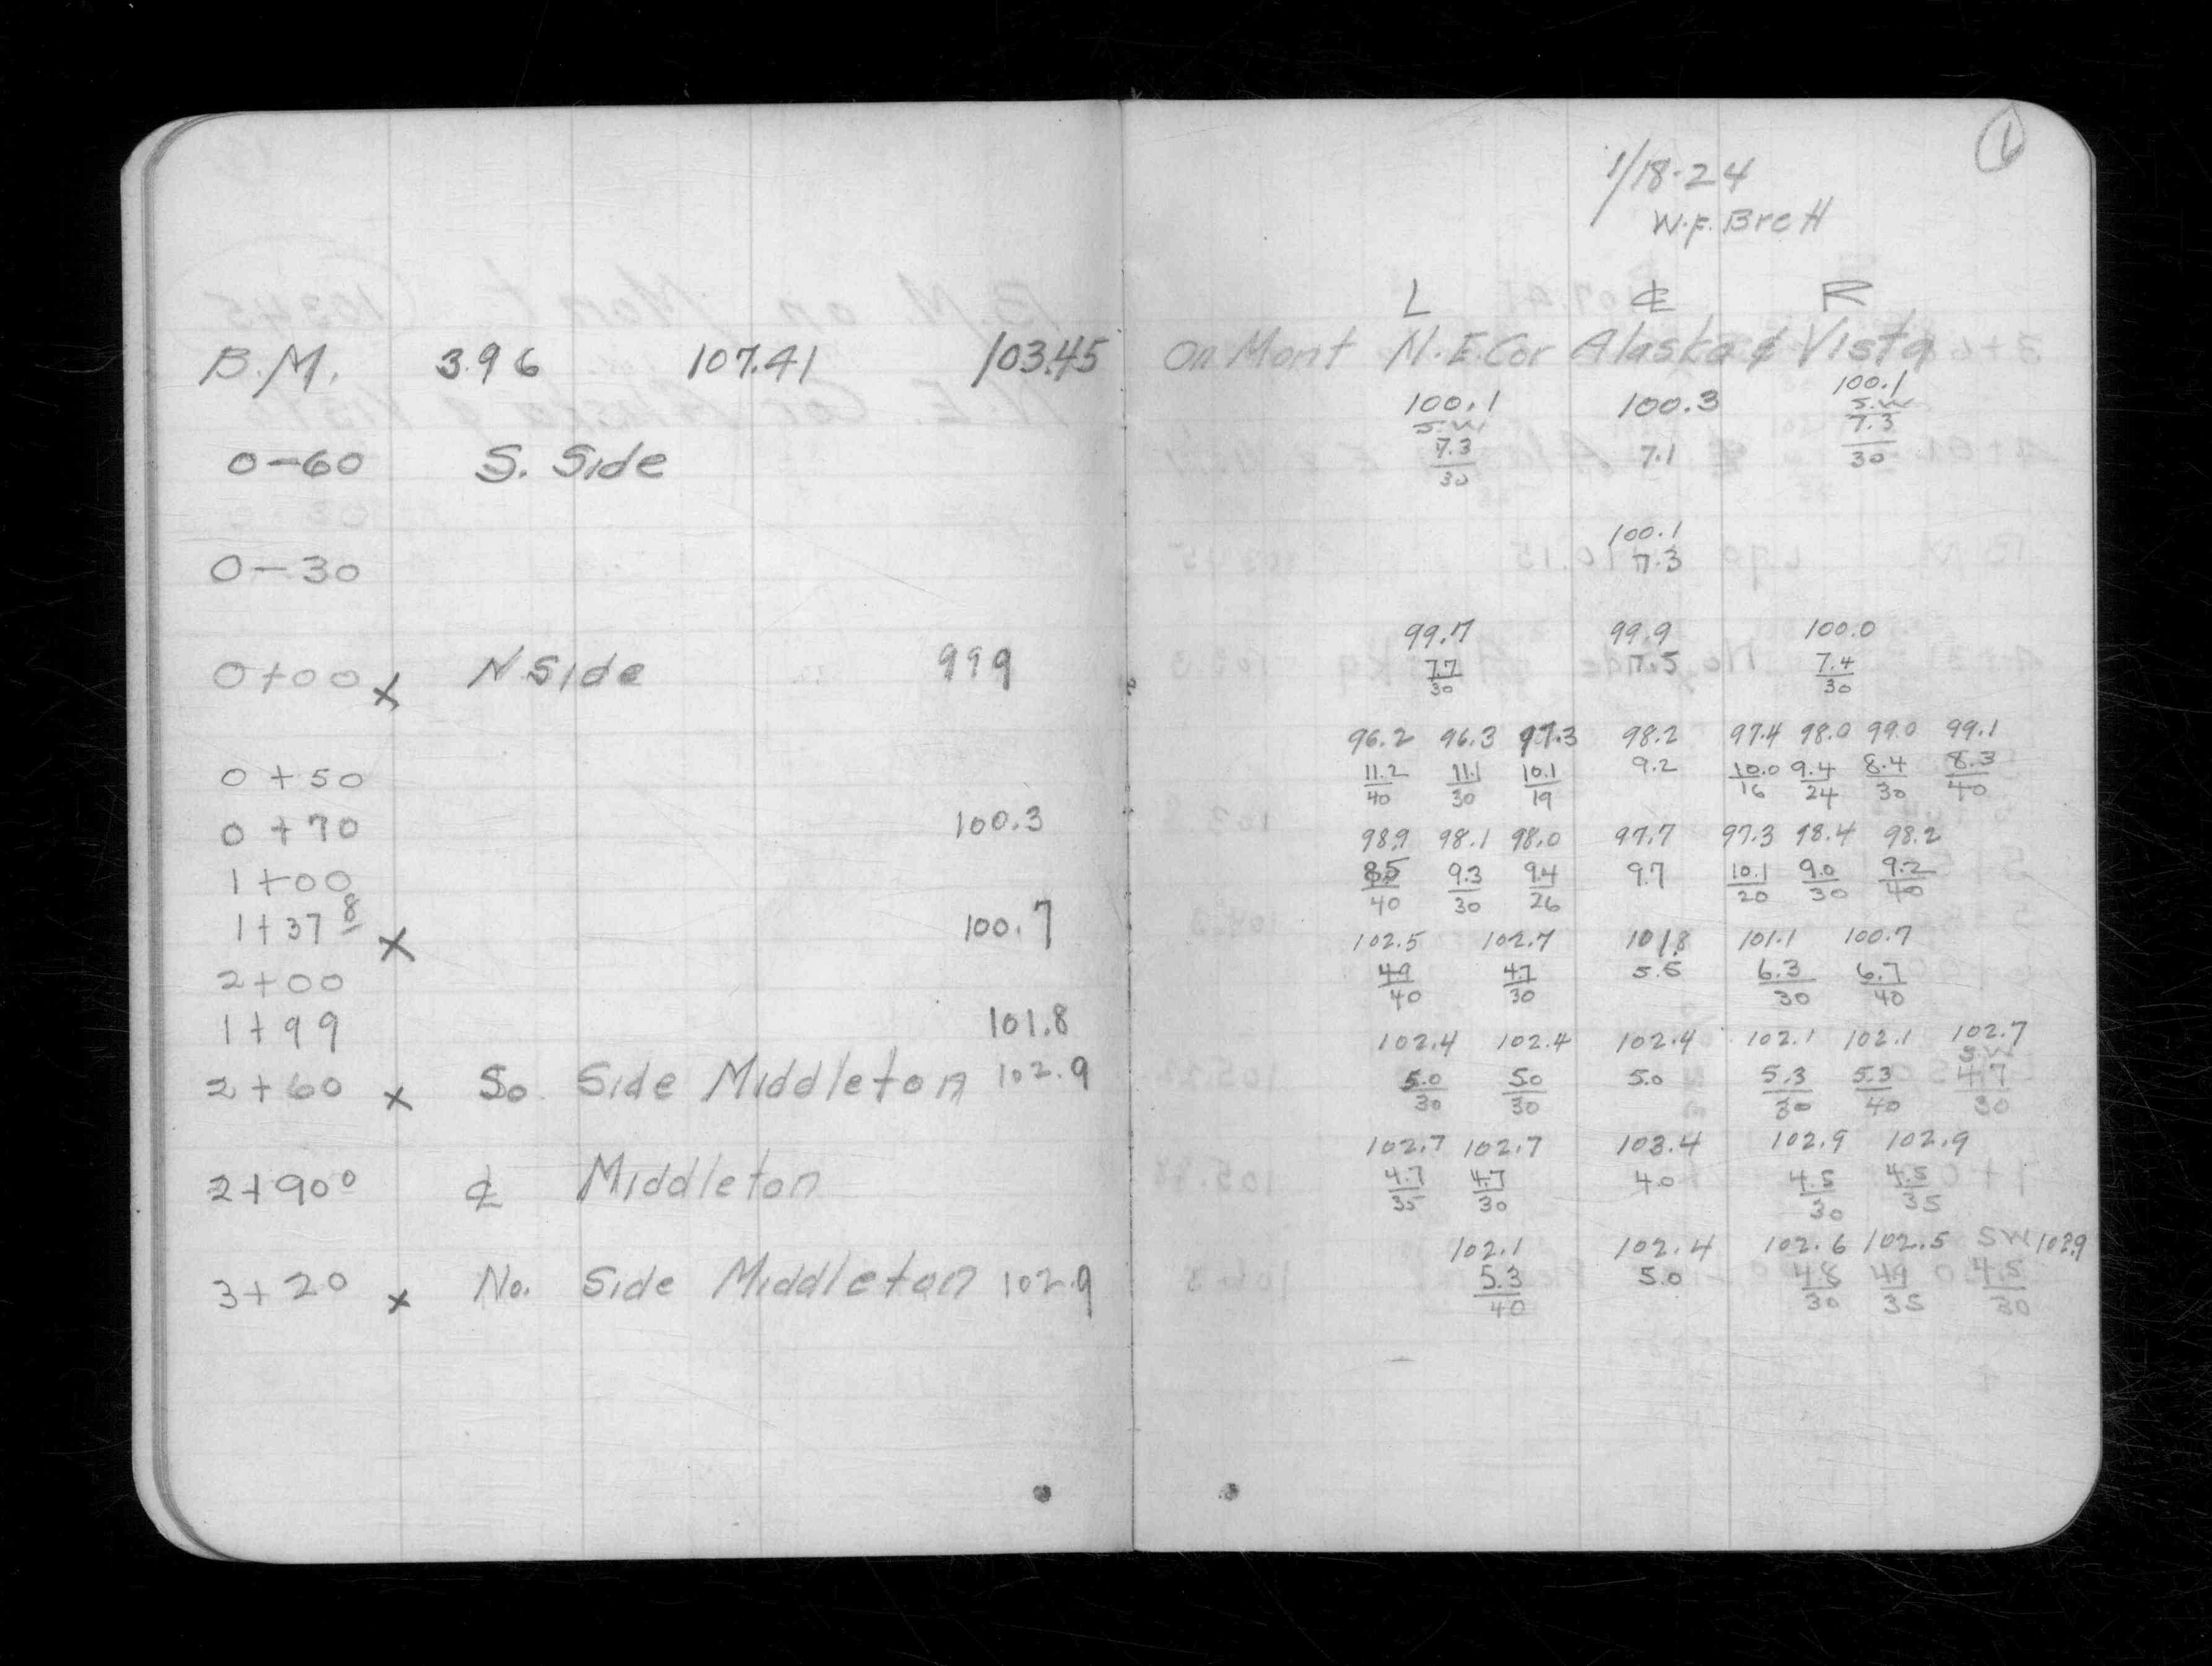 6
1/18-24
W.F. Brett
L ₵ R
B.M. 3.96 107.41 103.45 On Mont N.E. Cor Alaska & Vista
100.1 100.3 100.1
S.W S.W
0-60 S. Side 7.3/30 7.1 7.3/30
100.1
0-30 7.3
99.7 99.9 100.0
0+00 x N Side 99.9 7.7/30 7.5 7.4/30
96.2 96.3 97.3 98.2 97.4 98.0 99.0 99.1
0+50 11.2/40 11.1/30 10.1/19 9.2 10.0/16 9.4/24 8.4/30 8.3/40
0+70 100.3 98.9 98.1 98.0 97.7 97.3 98.4 98.2
1+00 8.5/40 9.3/30 9.4/26 9.7 10.1/20 9.0/30 9.2/40
1+37 8 x 100.7 102.5 102.7 101.8 101.1 100.7
2+00 4.9/40 4.7/30 5.6 6.3/30 6.7/40
1+99 101.8 102.4 102.4 102.4 102.1 102.1 102.7
S.W
2+60 x So. Side Middleton 102.9 5.0/30 5.0/30 5.0 5.3/30 5.3/40 4.7/30
102.7 102.7 103.4 102.9 102.9
2+90 0 ₵ Middleton 4.7/35 4.7/30 4.0 4.5/30 4.5/35
102.1 102.4 102.6 102.5 SW 102.9
3+20 x No. Side Middleton 102.9 5.3/40 5.0 4.8/30 4.9/35 4.5/30